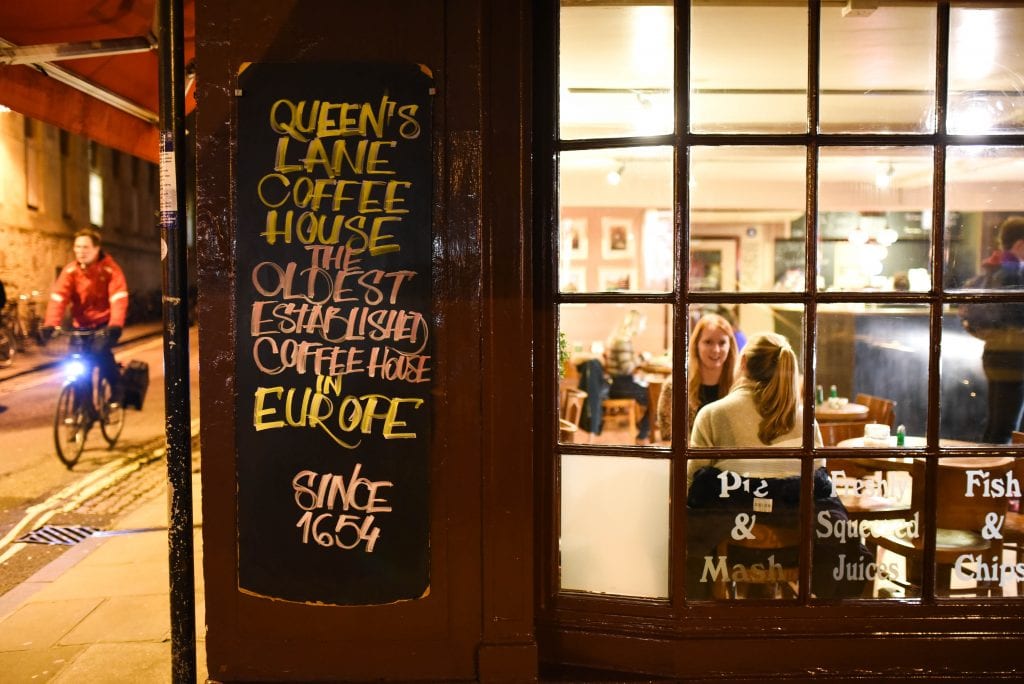 QUEEN'S
LANE
COFFEE
HOUSE
THE
OLDEST
ESTABLISHED
COFFEE HOUSE
IN
EUROPE
SINCE
1654
Pie
&
Mash
Freshly
Squeezed
Juices
Fish
&
Chips